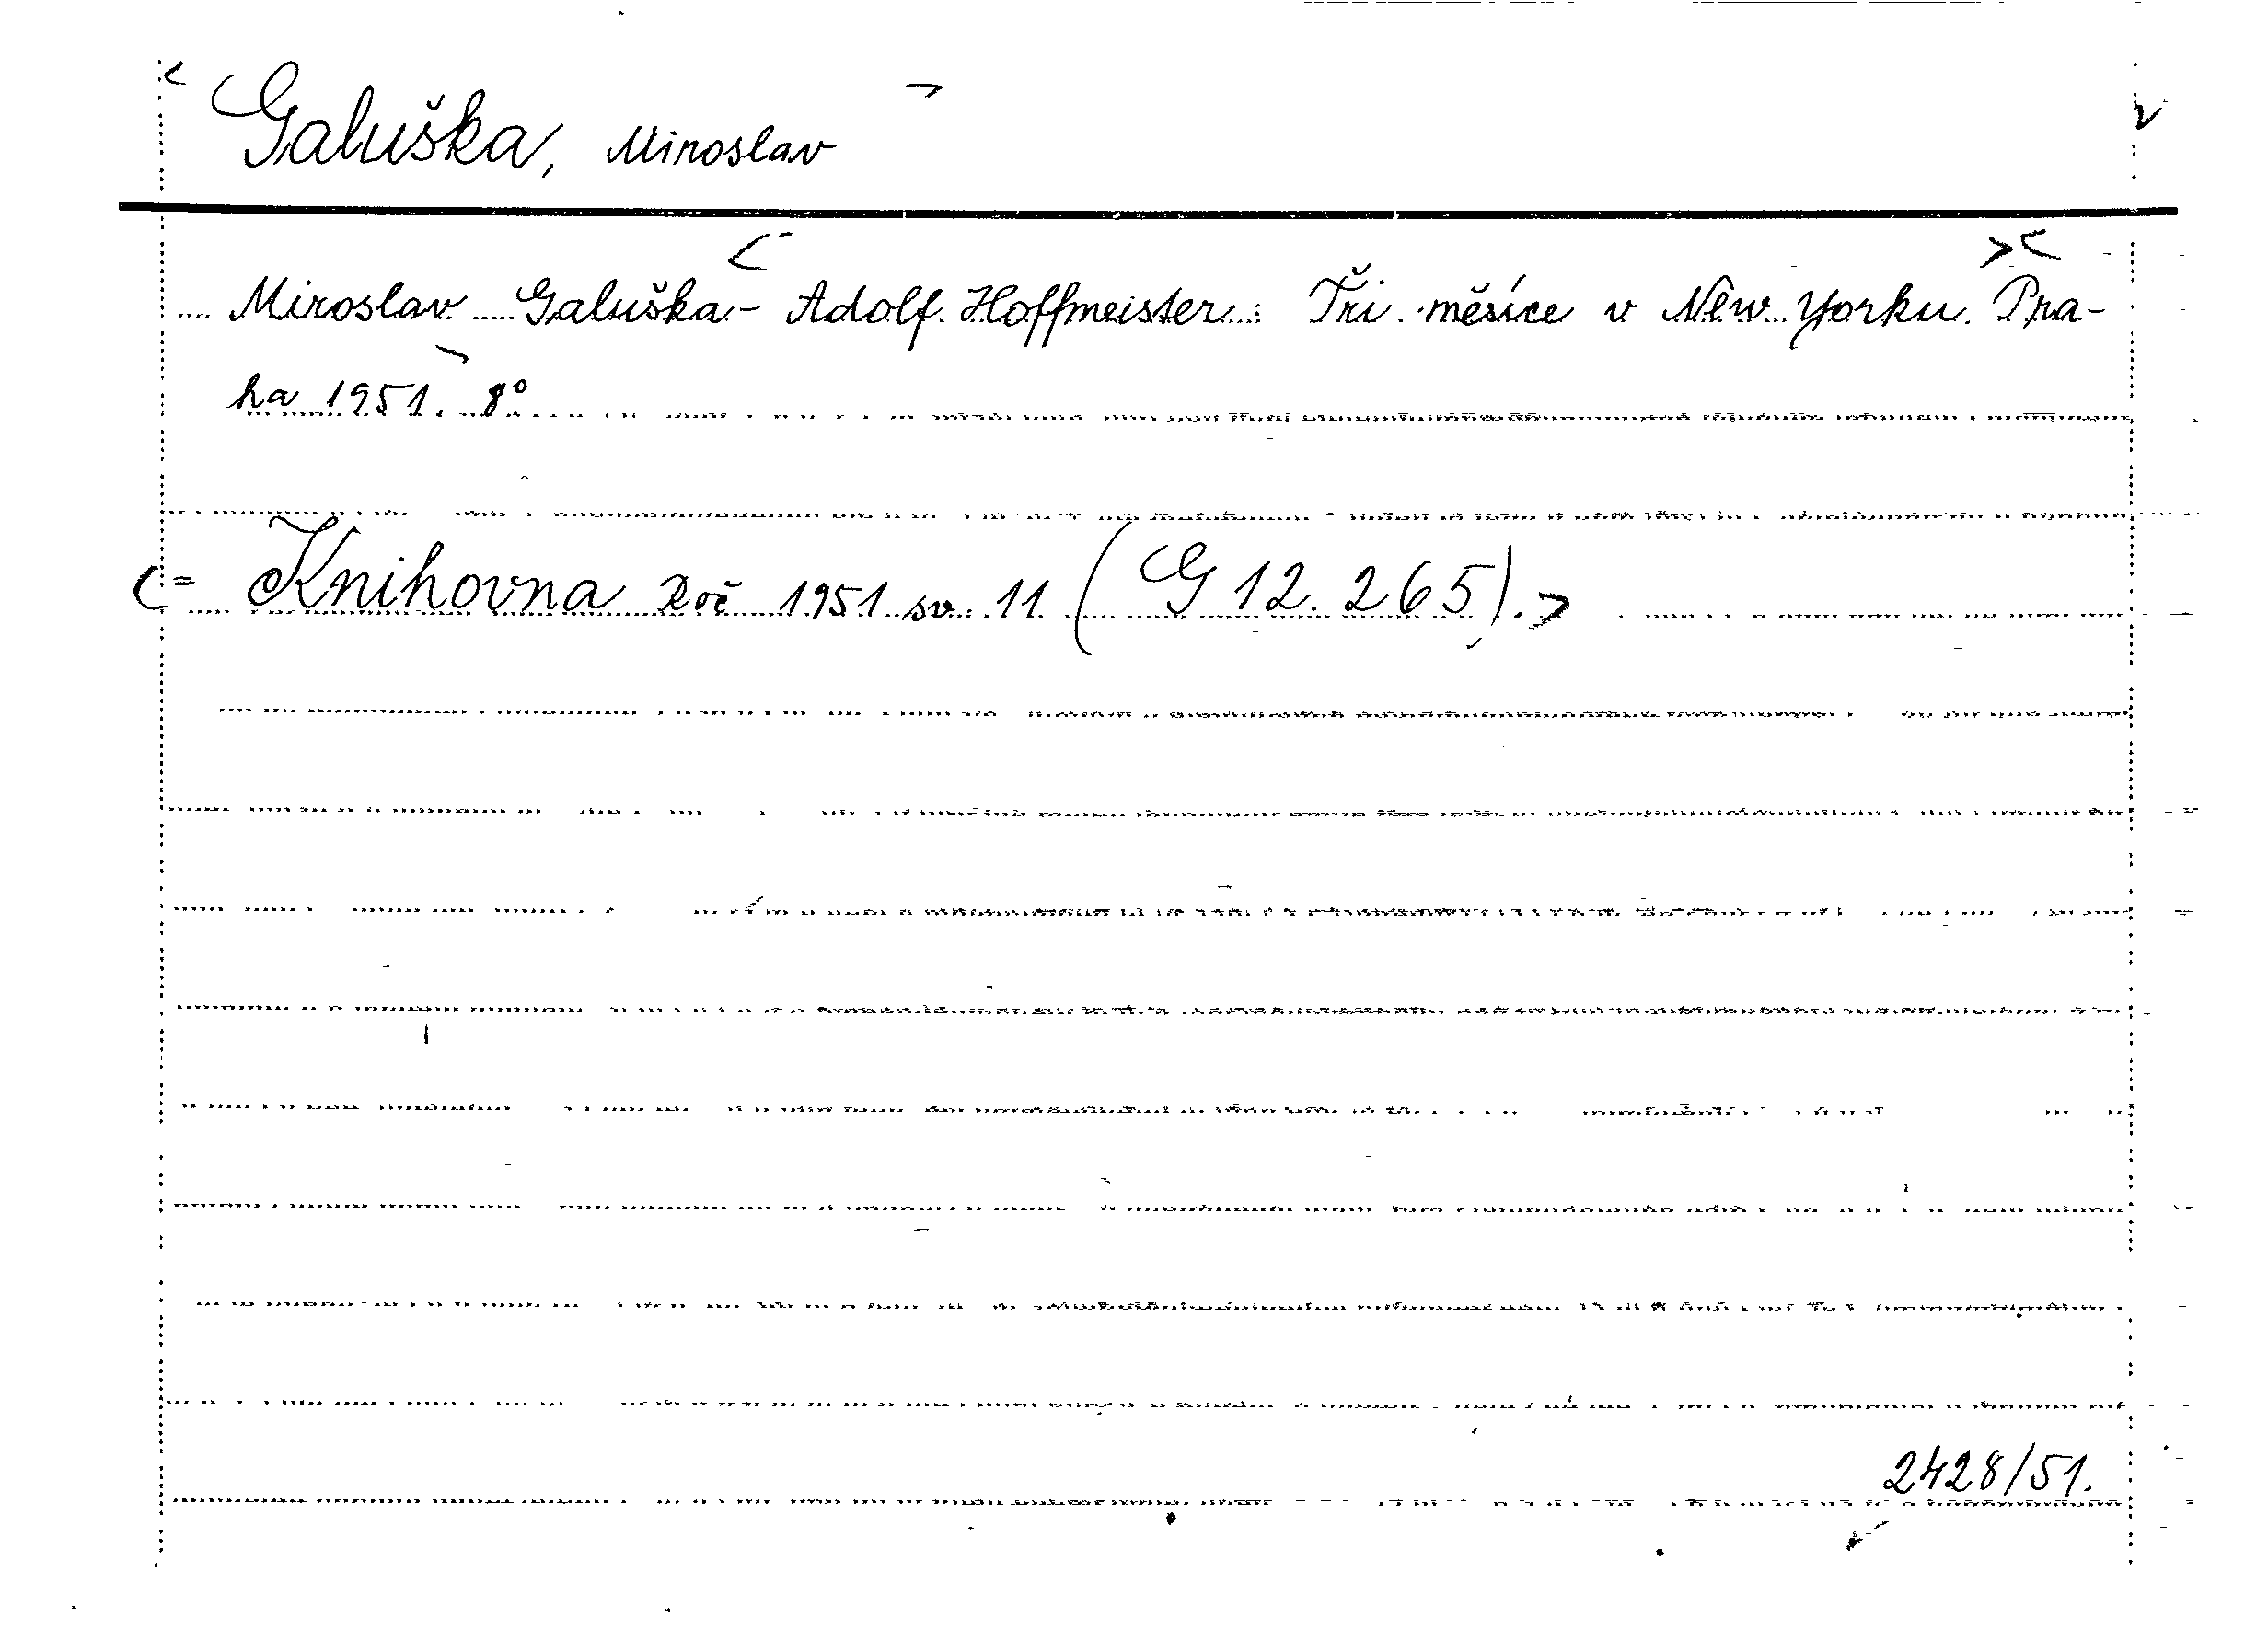 Galuška, Miroslav
Miroslav Galuška - Adolf Hoffmeister: Tři měsíce v New Yorku. Pra-
ha 1951. 8°
= Knihovna Roč 1951 sv. 11 (G 12.265).
2428/51.